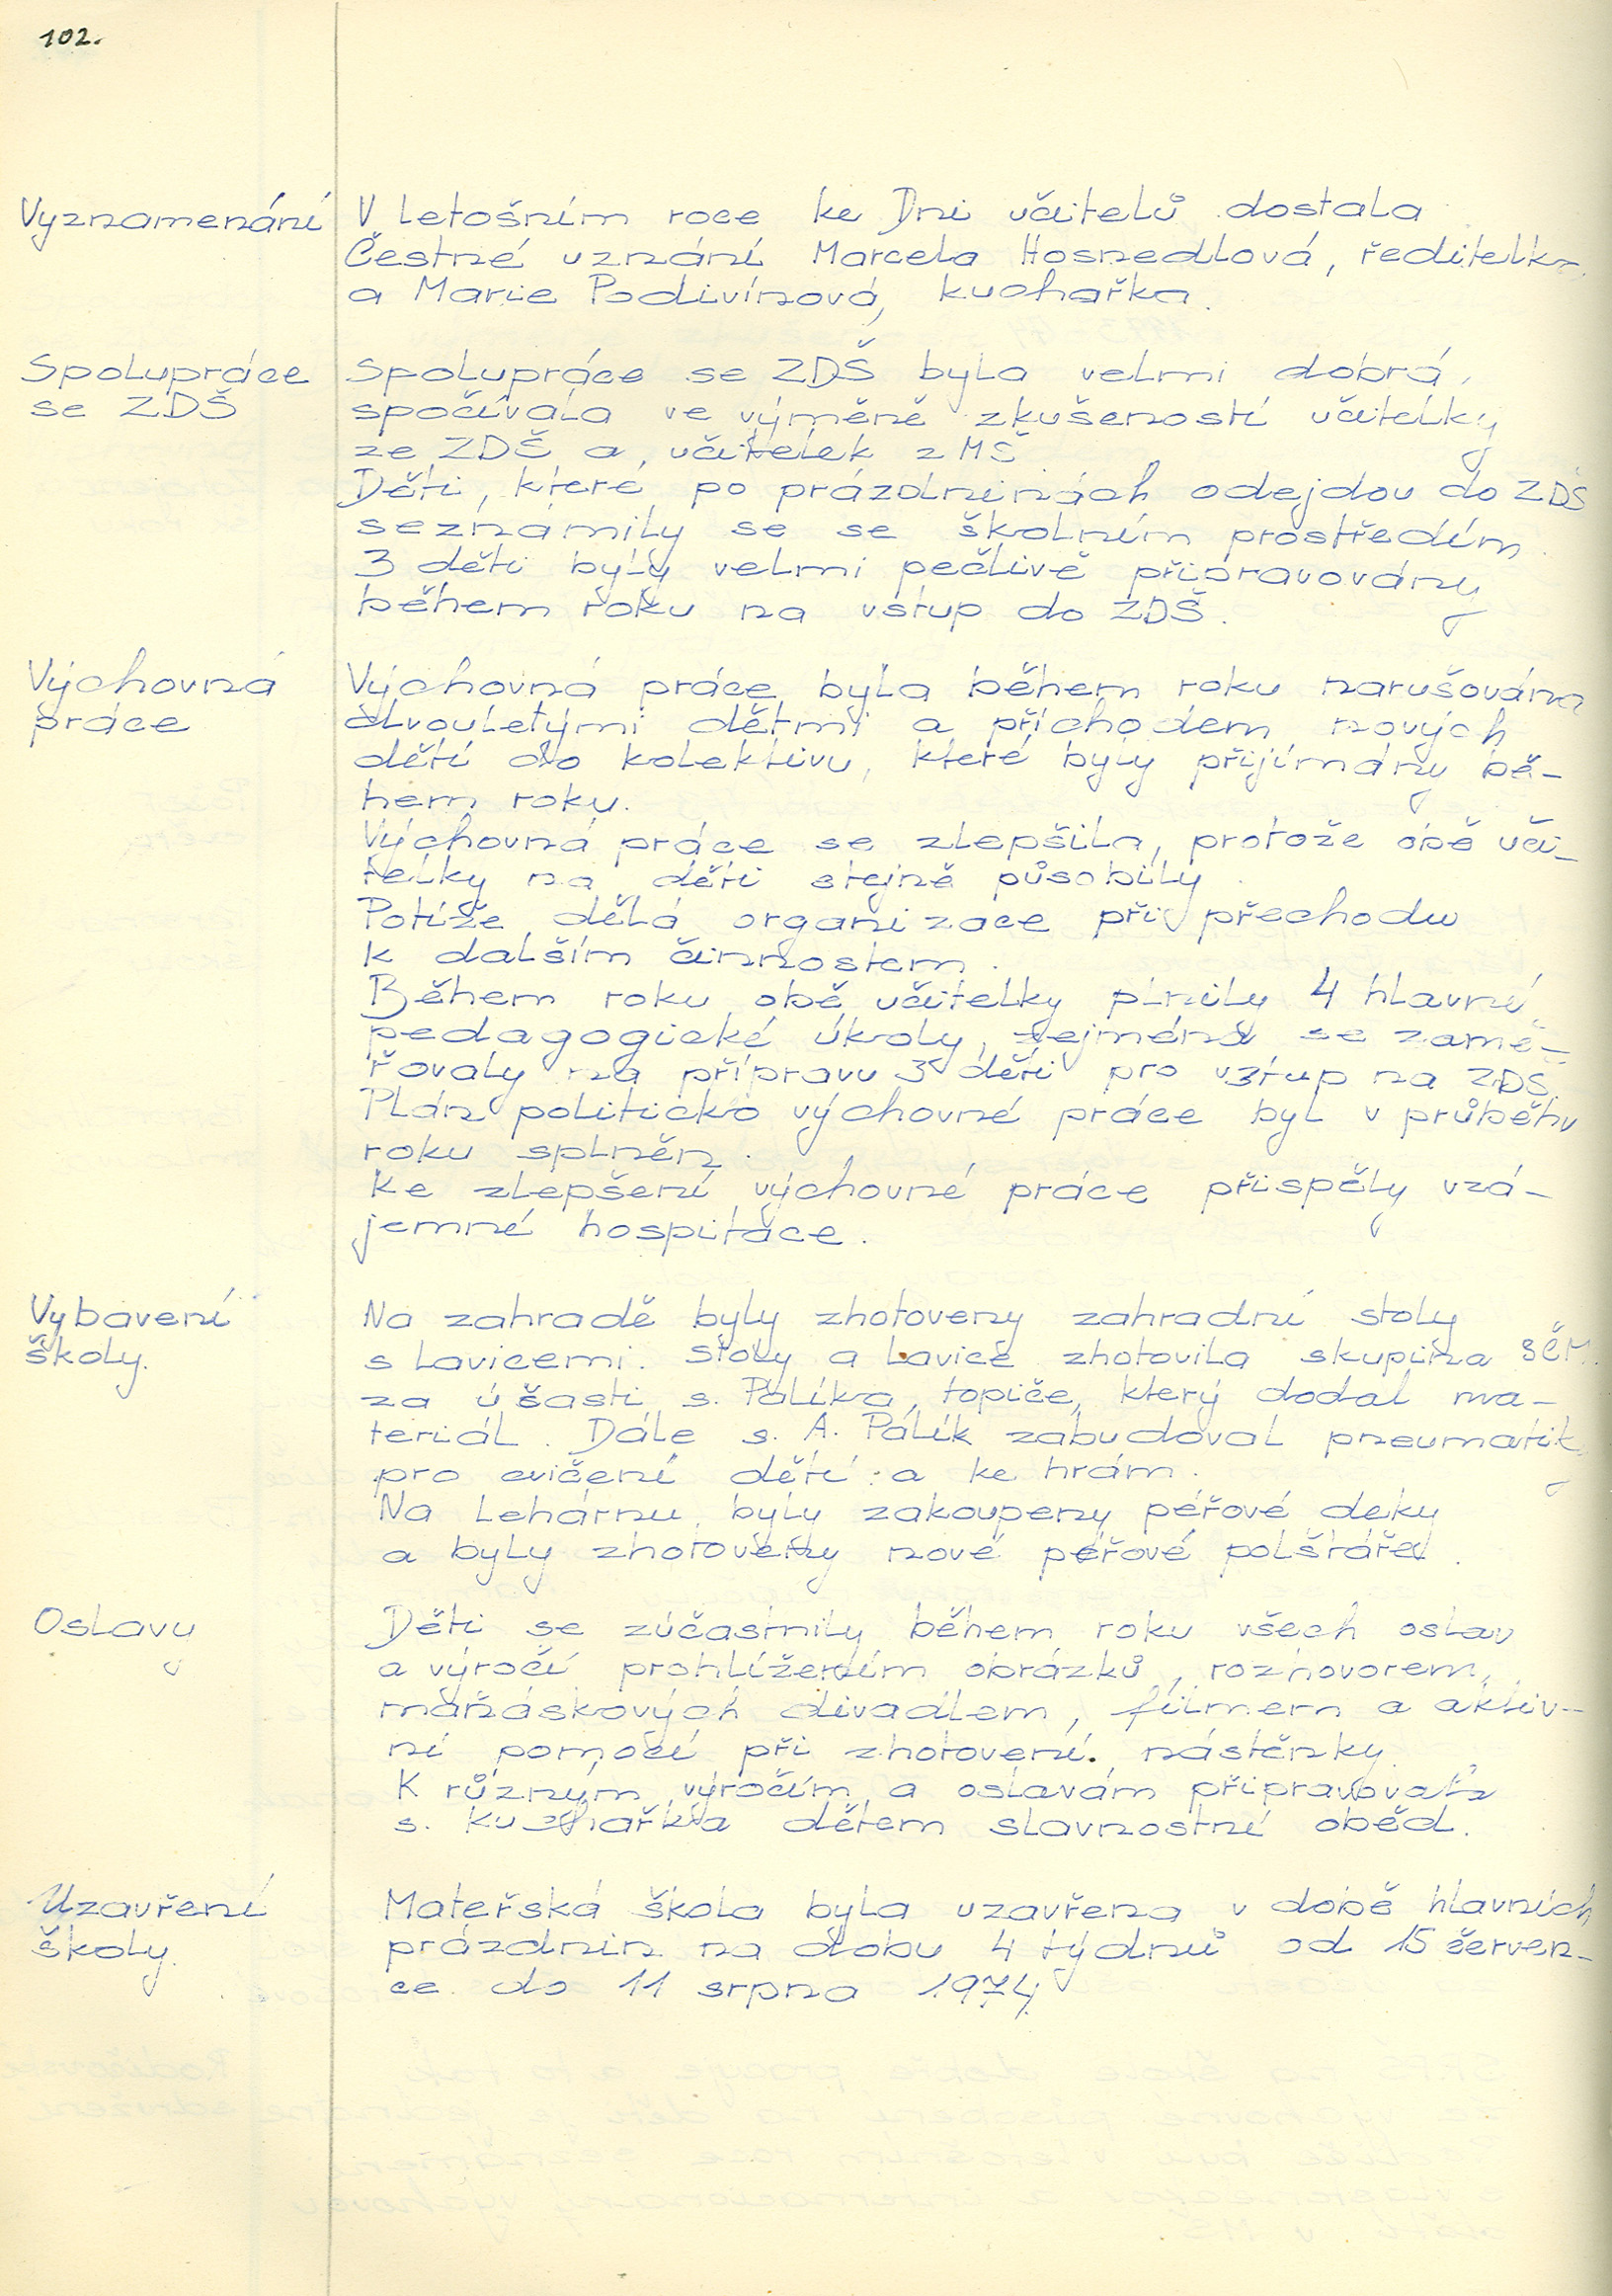 102.
Vyznamenání
V letošním roce ke Dni učitelů dostala
Čestné uznání Marcela Hosnedlová, ředitelka
a Marie Podivínová, kuchařka.
Spolupráce
se ZDŠ
Spolupráce se ZDŠ byla velmi dobrá,
spočívala ve výměně zkušeností učitelky
ze ZDŠ a učitelek z MŠ
Děti, které po prázdninách odejdou do ZDŠ
seznámily se se školním prostředím.
3 děti byly velmi pečlivě připravovány
během roku na vstup do ZDŠ.
Výchovná
práce
Výchovná práce byla během roku narušována
dvouletými dětmi a příchodem nových
dětí do kolektivu, které byly přijímány bě-
hem roku.
Výchovná práce se zlepšila, protože obě uči-
telky na děti stejně působily.
Potíže dělá organizace při přechodu
k dalším činnostem.
Během roku obě učitelky plnily 4 hlavní
pedagogické úkoly, zejména se zamě-
řovaly na přípravu 3 dětí pro vstup na ZDŠ.
Plán politicko výchovné práce byl v průběhu
roku splněn.
Ke zlepšení výchovné práce přispěly vzá-
jemné hospitace.
Vybavení
školy.
Na zahradě byly zhotoveny zahradní stoly
s lavicemi. Stoly a lavice zhotovila skupina SČM.
za účasti s. Pálíka, topiče, který dodal ma-
teriál. Dále s. A. Pálík zabudoval pneumatiky
pro cvičení dětí a ke hrám.
Na lehárnu byly zakoupeny péřové deky
a byly zhotoveny nové péřové polštáře.
Oslavy
Děti se zúčastnily během roku všech oslav
a výročí prohlížením obrázků, rozhovorem,
maňáskových divadlem, filmem a aktiv-
ní pomocí při zhotovení nástěnky.
K různým výročím a oslavám připravovala
s. kuchařka dětem slavnostní oběd.
Uzavření
školy.
Mateřská škola byla uzavřena v době hlavních
prázdnin na dobu 4 týdnů od 15 červen-
ce do 11 srpna 1974